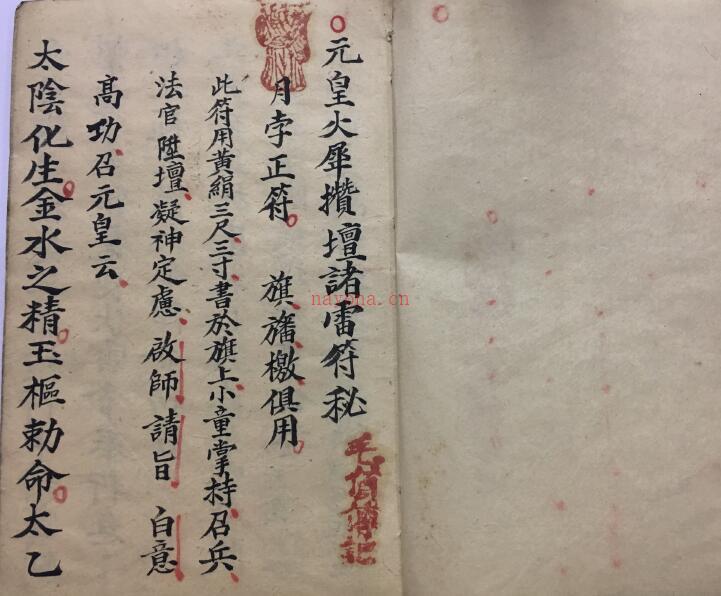 元皇火犀攢壇諸雷符秘
月孛正符 旗旛檄俱用
此符用黃絹三尺三寸書於旗上小童掌持召兵
法官陞壇凝神定慮啟師請旨 白意
高功召元皇云
太陰化生金水之精玉樞勅命太乙
nayona.cn